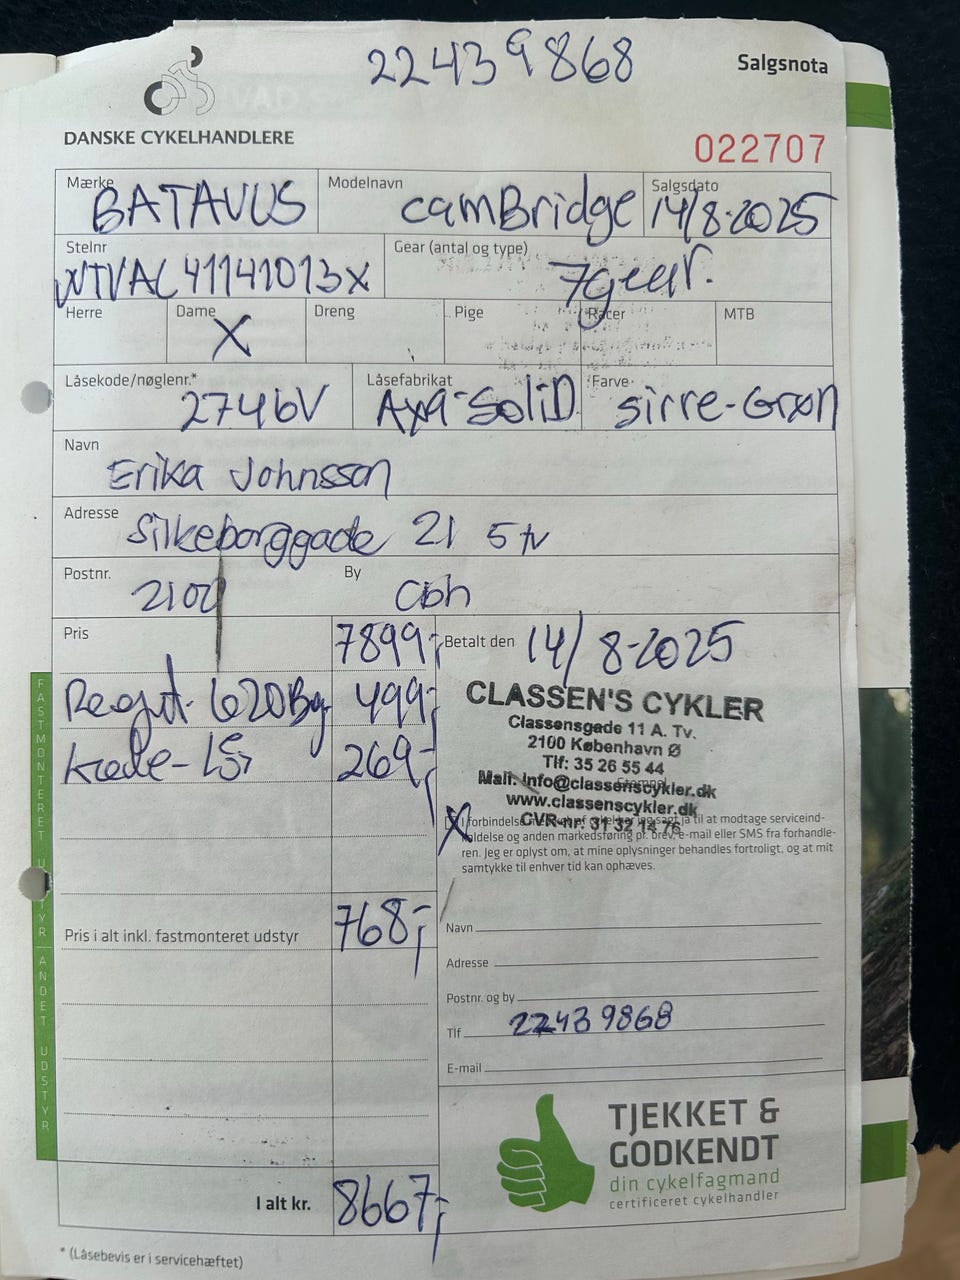 22439868
Salgsnota
DANSKE CYKELHANDLERE
022707
Mærke BATAVUS Modelnavn camBridge Salgsdato 14/8-2025
Stelnr WTVAC41141013X Gear (antal og type) 7gear.
Herre Dame X Dreng Pige Racer MTB
Låsekode/nøglenr.* 2746V Låsefabrikat Axa-SoliD Farve sirre-Grøn
Navn Erika Johnsson
Adresse Silkeborggade 21 5 tv
Postnr. 2100 By Cbh
Pris 7899,- Betalt den 14/8-2025
620 499,-
Kæde-Lås 269,-
CLASSEN'S CYKLER
Classensgade 11 A. Tv.
2100 København Ø
Tlf: 35 26 55 44
Mail: info@classenscykler.dk
www.classenscykler.dk
CVR-nr: 31 32 14 76
X I forbindelse jeg sagt ja til at modtage serviceind-
koldelse og anden markedsføring pr. brev, e-mail eller SMS fra forhandle-
ren. Jeg er oplyst om, at mine oplysninger behandles fortroligt, og at mit
samtykke til enhver tid kan ophæves.
FASTMONTERET UDSTYR ANDET UDSTYR
Pris i alt inkl. fastmonteret udstyr 768,-
Navn
Adresse
Postnr. og by
Tlf 22439868
E-mail
TJEKKET &
GODKENDT
din cykelfagmand
certificeret cykelhandler
I alt kr. 8667,-
* (Låsebevis er i servicehæftet)